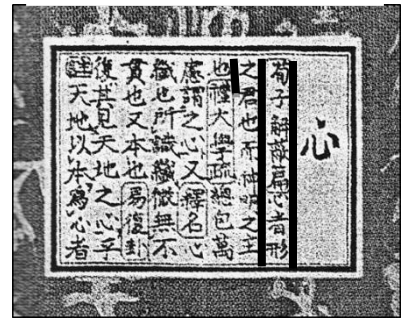 心
荀子解蔽篇心者形
之君也而神明之主
也禮大學疏總包萬
慮謂之心又釋名心
纖也所識纖微無不
貫也又本也易復卦
復其見天地之心乎
註天地以本爲心者